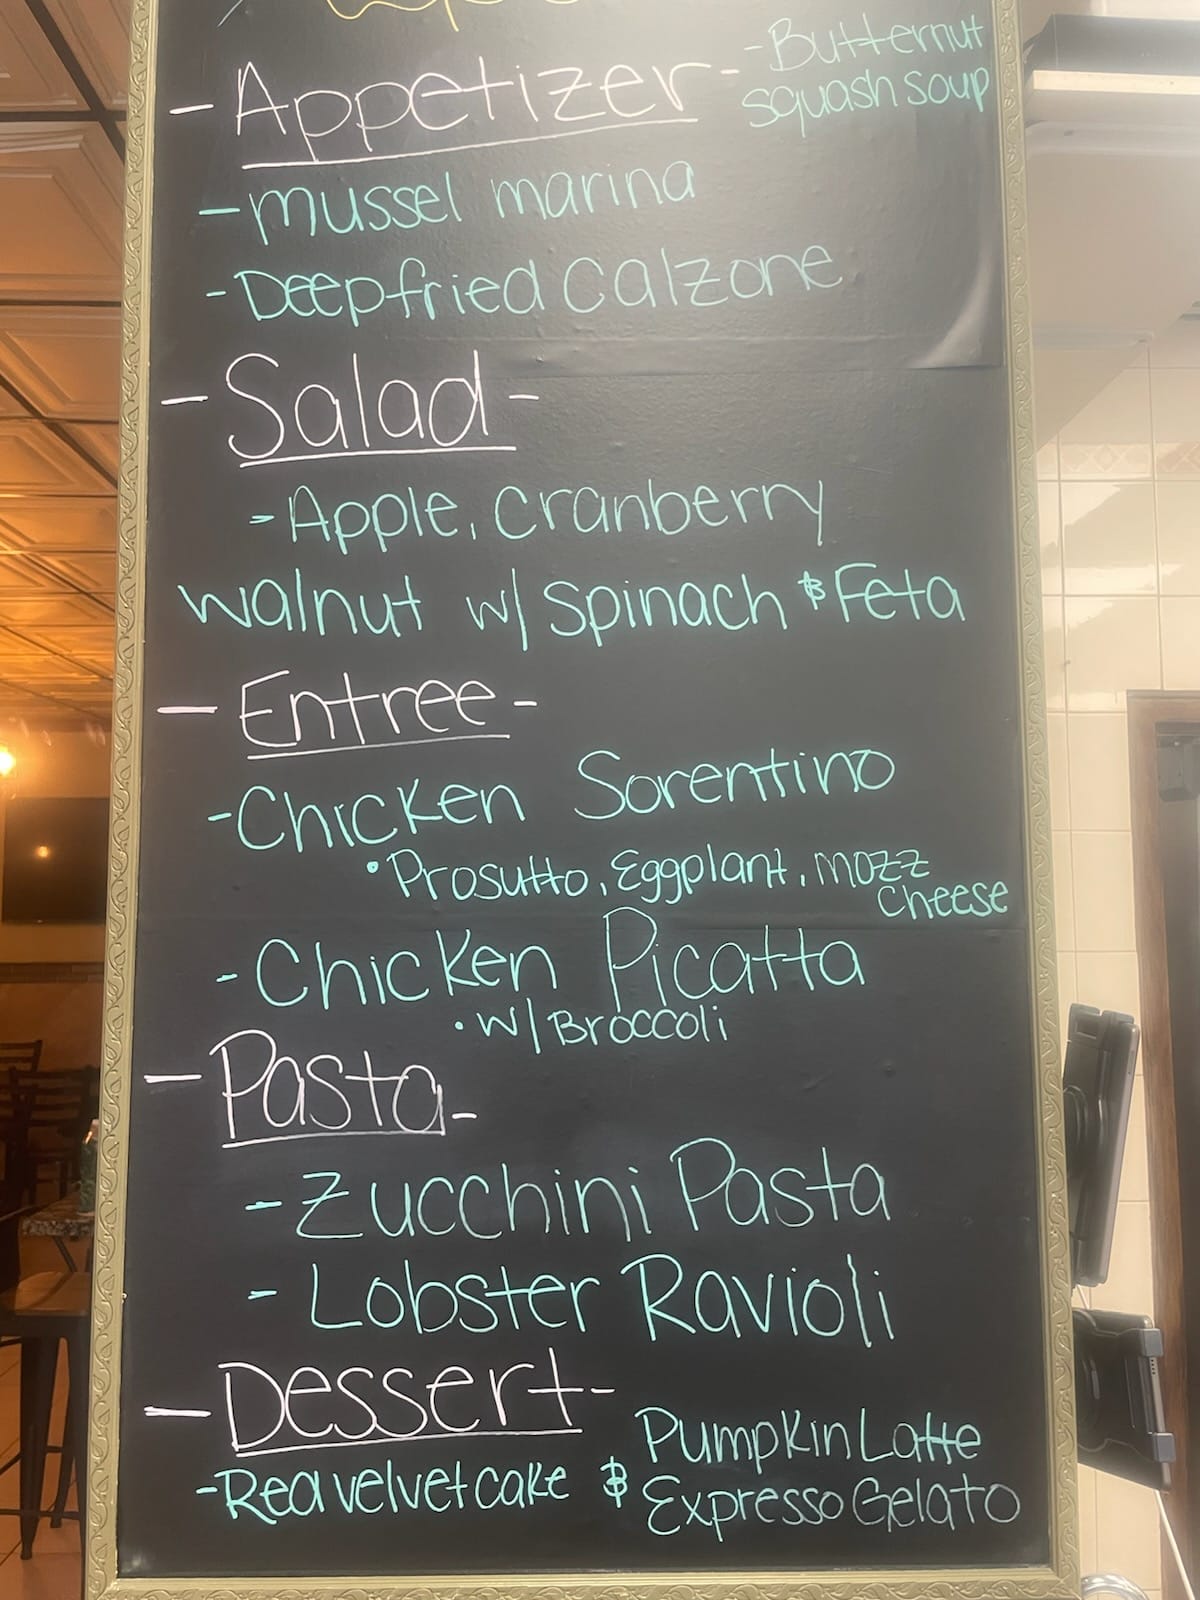 - Appetizer -
- Butternut
squash soup
- mussel marina
- Deepfried Calzone
- Salad -
- Apple, cranberry
walnut w/ spinach & Feta
- Entree -
- Chicken Sorentino
• Prosutto, Eggplant, mozz
cheese
- Chicken Picatta
• w/ Broccoli
- Pasta -
- Zucchini Pasta
- Lobster Ravioli
- Dessert -
- Red velvet cake & Pumpkin Latte
Expresso Gelato